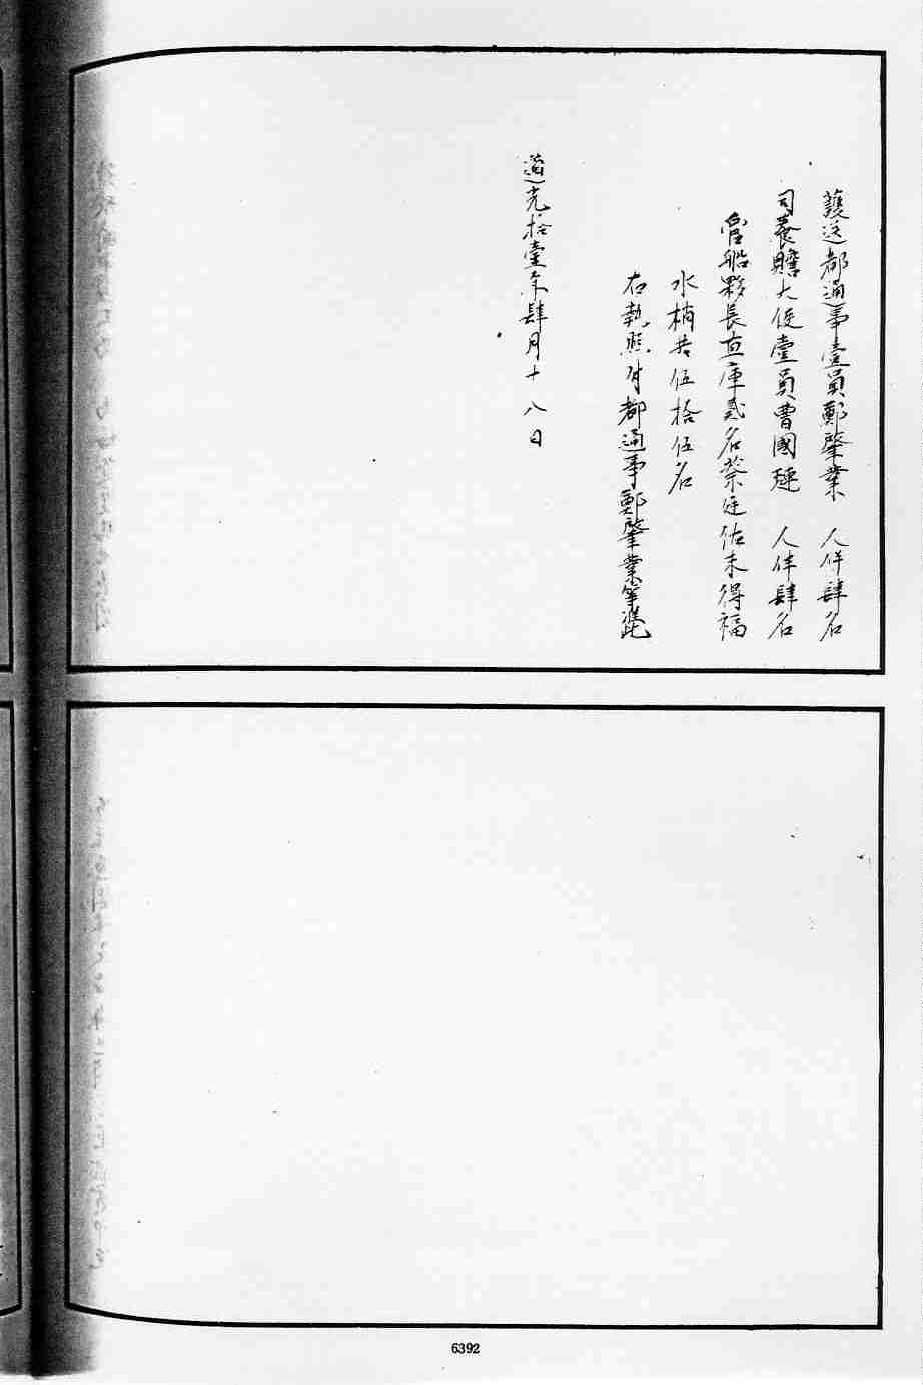 護送都通事壹員鄭肇業　人伴肆名
司養贍大使壹員曹國　人伴肆名
管船夥長直庫貳名蔡廷佑未得福
水梢共伍拾伍名
右執照付都通事鄭肇業等
道光拾壹年肆月十八日
6392